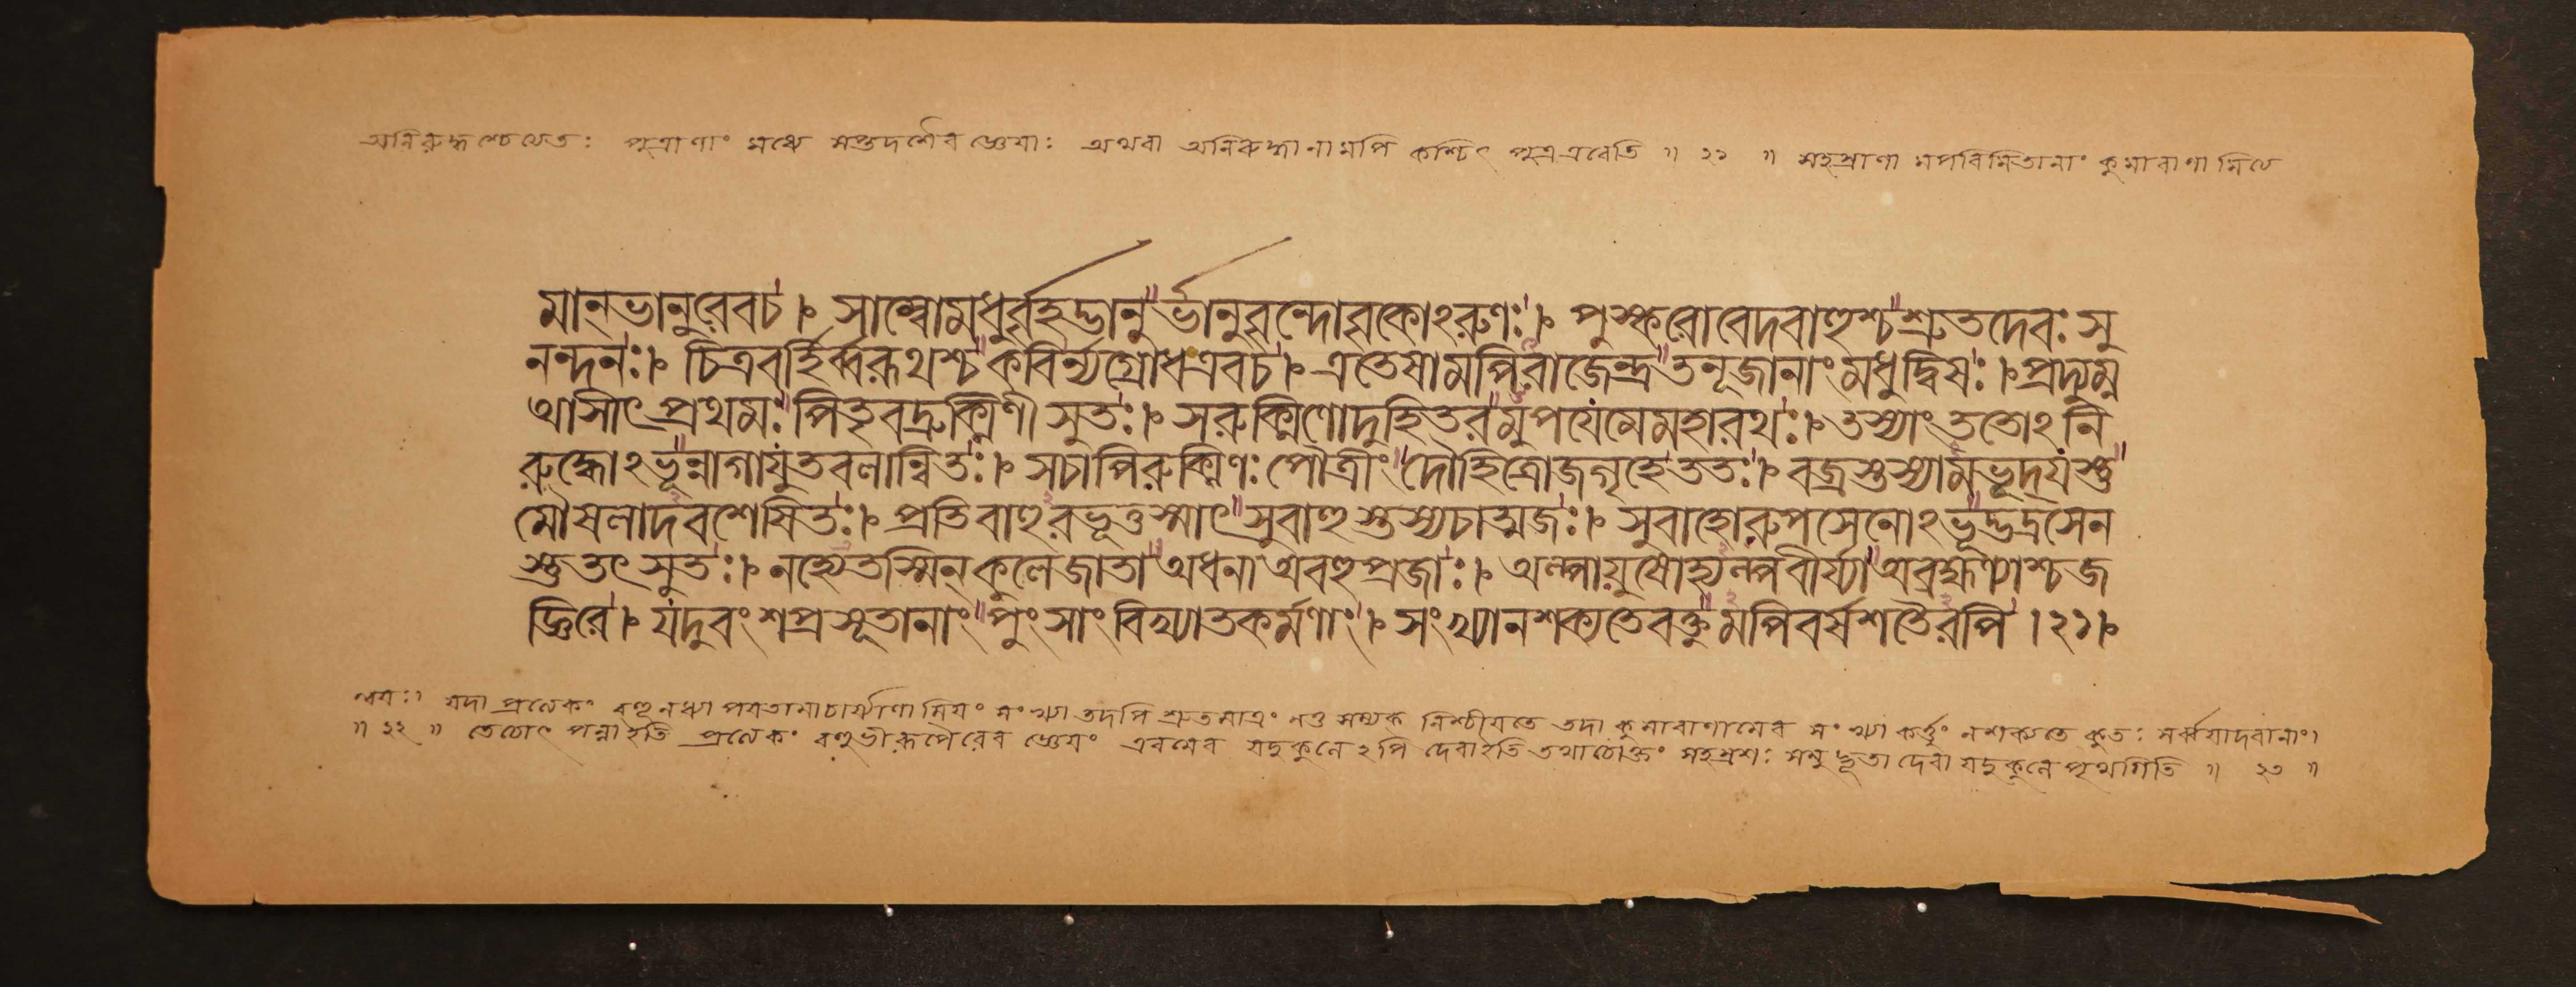 অনিরুদ্ধশ্চেত্যেতঃ পুত্রাণাং মধ্যে সপ্তদশৈব জ্ঞেয়াঃ অথবা অনিরুদ্ধানামপি কশ্চিৎ পুত্রএবেতি ॥ ২১ ॥ সহস্রাণা মপরিমিতানাং কুমারাণামিত্যে
মানভানুরেবচ। সাম্বোমধুর্বৃহদ্ভানুর্ভানুবৃন্দোবৃকোঽরুণঃ। পুস্করোবেদবাহুশ্চশ্রুতদেবঃ সু
নন্দনঃ। চিত্রবর্হির্ব্বরূথশ্চকবির্ন্যগ্রোধএবচ। এতেষামপিরাজেন্দ্রতনূজানাং মধুদ্বিষঃ। প্রদ্যুম্ন
আসীৎ প্রথমঃ পিতৃবদ্রুক্মিণীসুতঃ। সরুক্মিণোদুহিতরমুপযেমেমহারথঃ। তস্যাং ততোঽনি
রুদ্ধোঽভূন্নাগাযুতবলান্বিতঃ। সচাপিরুক্মিণঃ পৌত্রীং দৌহিত্রোজগৃহেততঃ। বজ্রস্তস্যামভূদ্যস্তু
মৌষলাদবশেষিতঃ। প্রতিবাহুরভূত্তস্মাৎ সুবাহুস্তস্যচাত্মজঃ। সুবাহোরুপসেনোঽভূদ্ভদ্রসেন
স্তুতৎ সুতঃ। নহ্যেতস্মিন্ কুলেজাতা অধনা অবহুপ্রজাঃ। অল্পায়ুষোহ্যল্পবীর্য্যা অব্রহ্মণ্যাশ্চজ
জ্ঞিরে। যদুবংশপ্রসূতানাং পুংসাং বিখ্যাতকর্মণাং। সংখ্যানশক্যতেবক্তুমপিবর্ষশতৈরপি ।২১।
যদা প্রত্যেকং বহূনধ্যাপয়তামাচার্য্যাণামিয়ং সংখ্যা তদপি শ্রুতমাত্রং নতু সম্যক্ নিশ্চীয়তে তদা কুমারাণামেব সংখ্যা কর্ত্তুং নশক্যতে কুতঃ সর্ব্বযাদবানাং।
॥ ২২ ॥ তেৎপন্নাইতি প্রত্যেকং বহুভীরূপৈরেব জ্ঞেয়ং এবমেব যদুকুলেঽপি দেবাইতি তথাচোক্তং সহস্রশঃ সমুদ্ভূতা দেবা যদুকুলে পৃথগিতি ॥ ২৩ ॥